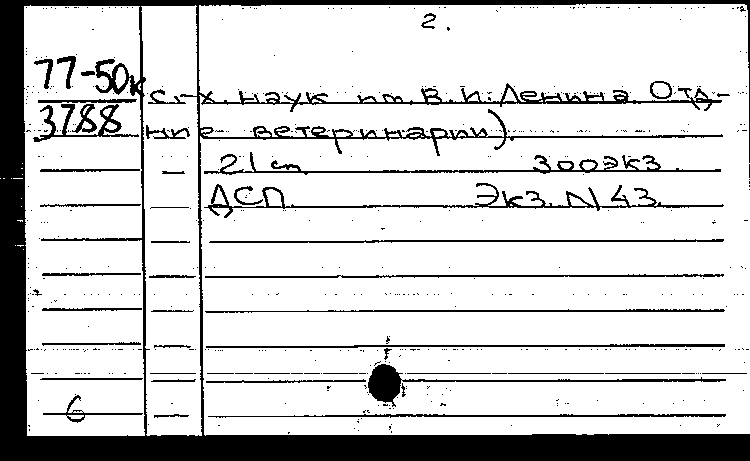 2.
77-50к с.-х. наук им. В.И. Ленина. Отд-
3788 ние ветеринарии).
21 см. 300 экз.
ДСП. Экз. N 43.
6